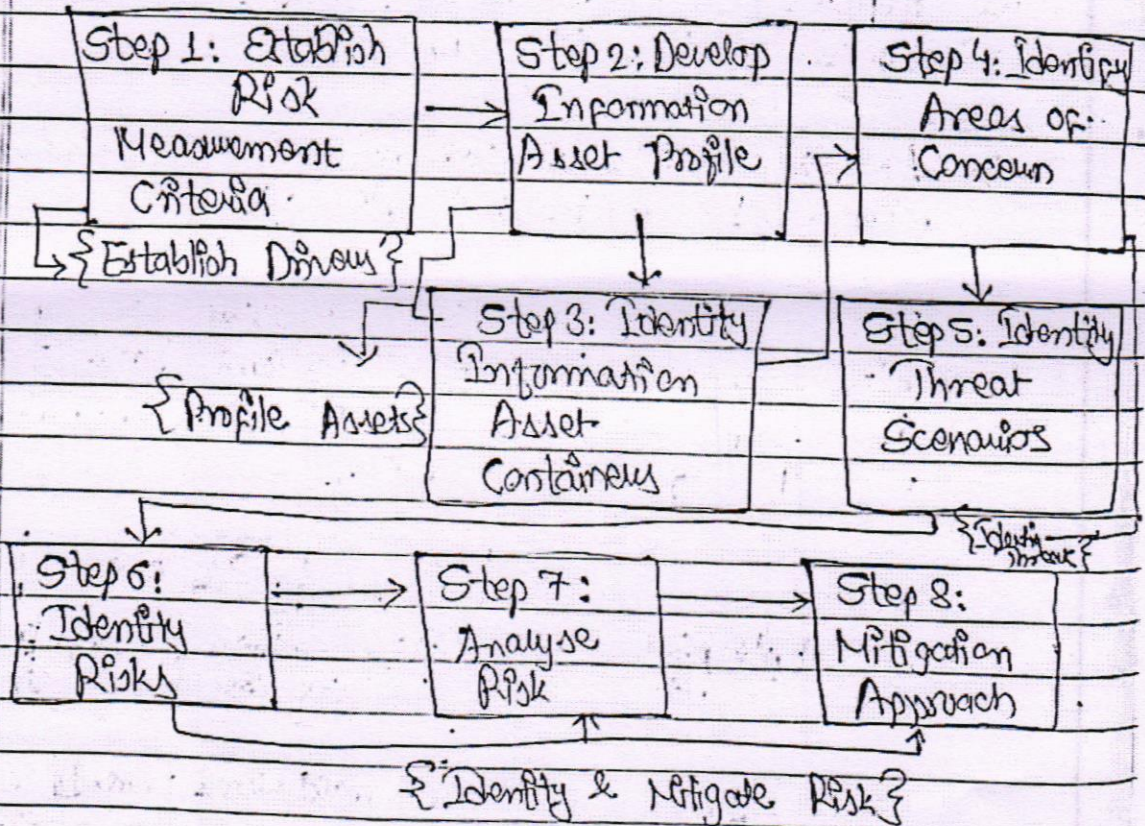 Step 1: Establish
Risk
Measurement
Criteria
{Establish Drivers}
Step 2: Develop
Information
Asset Profile
{Profile Assets}
Step 3: Identity
Information
Asset
Containers
Step 4: Identify
Areas of
Concern
Step 5: Identity
Threat
Scenarios
{Identity
Threat}
Step 6:
Identity
Risks
Step 7:
Analyse
Risk
Step 8:
Mitigation
Approach
{Identity & Mitigate Risk}